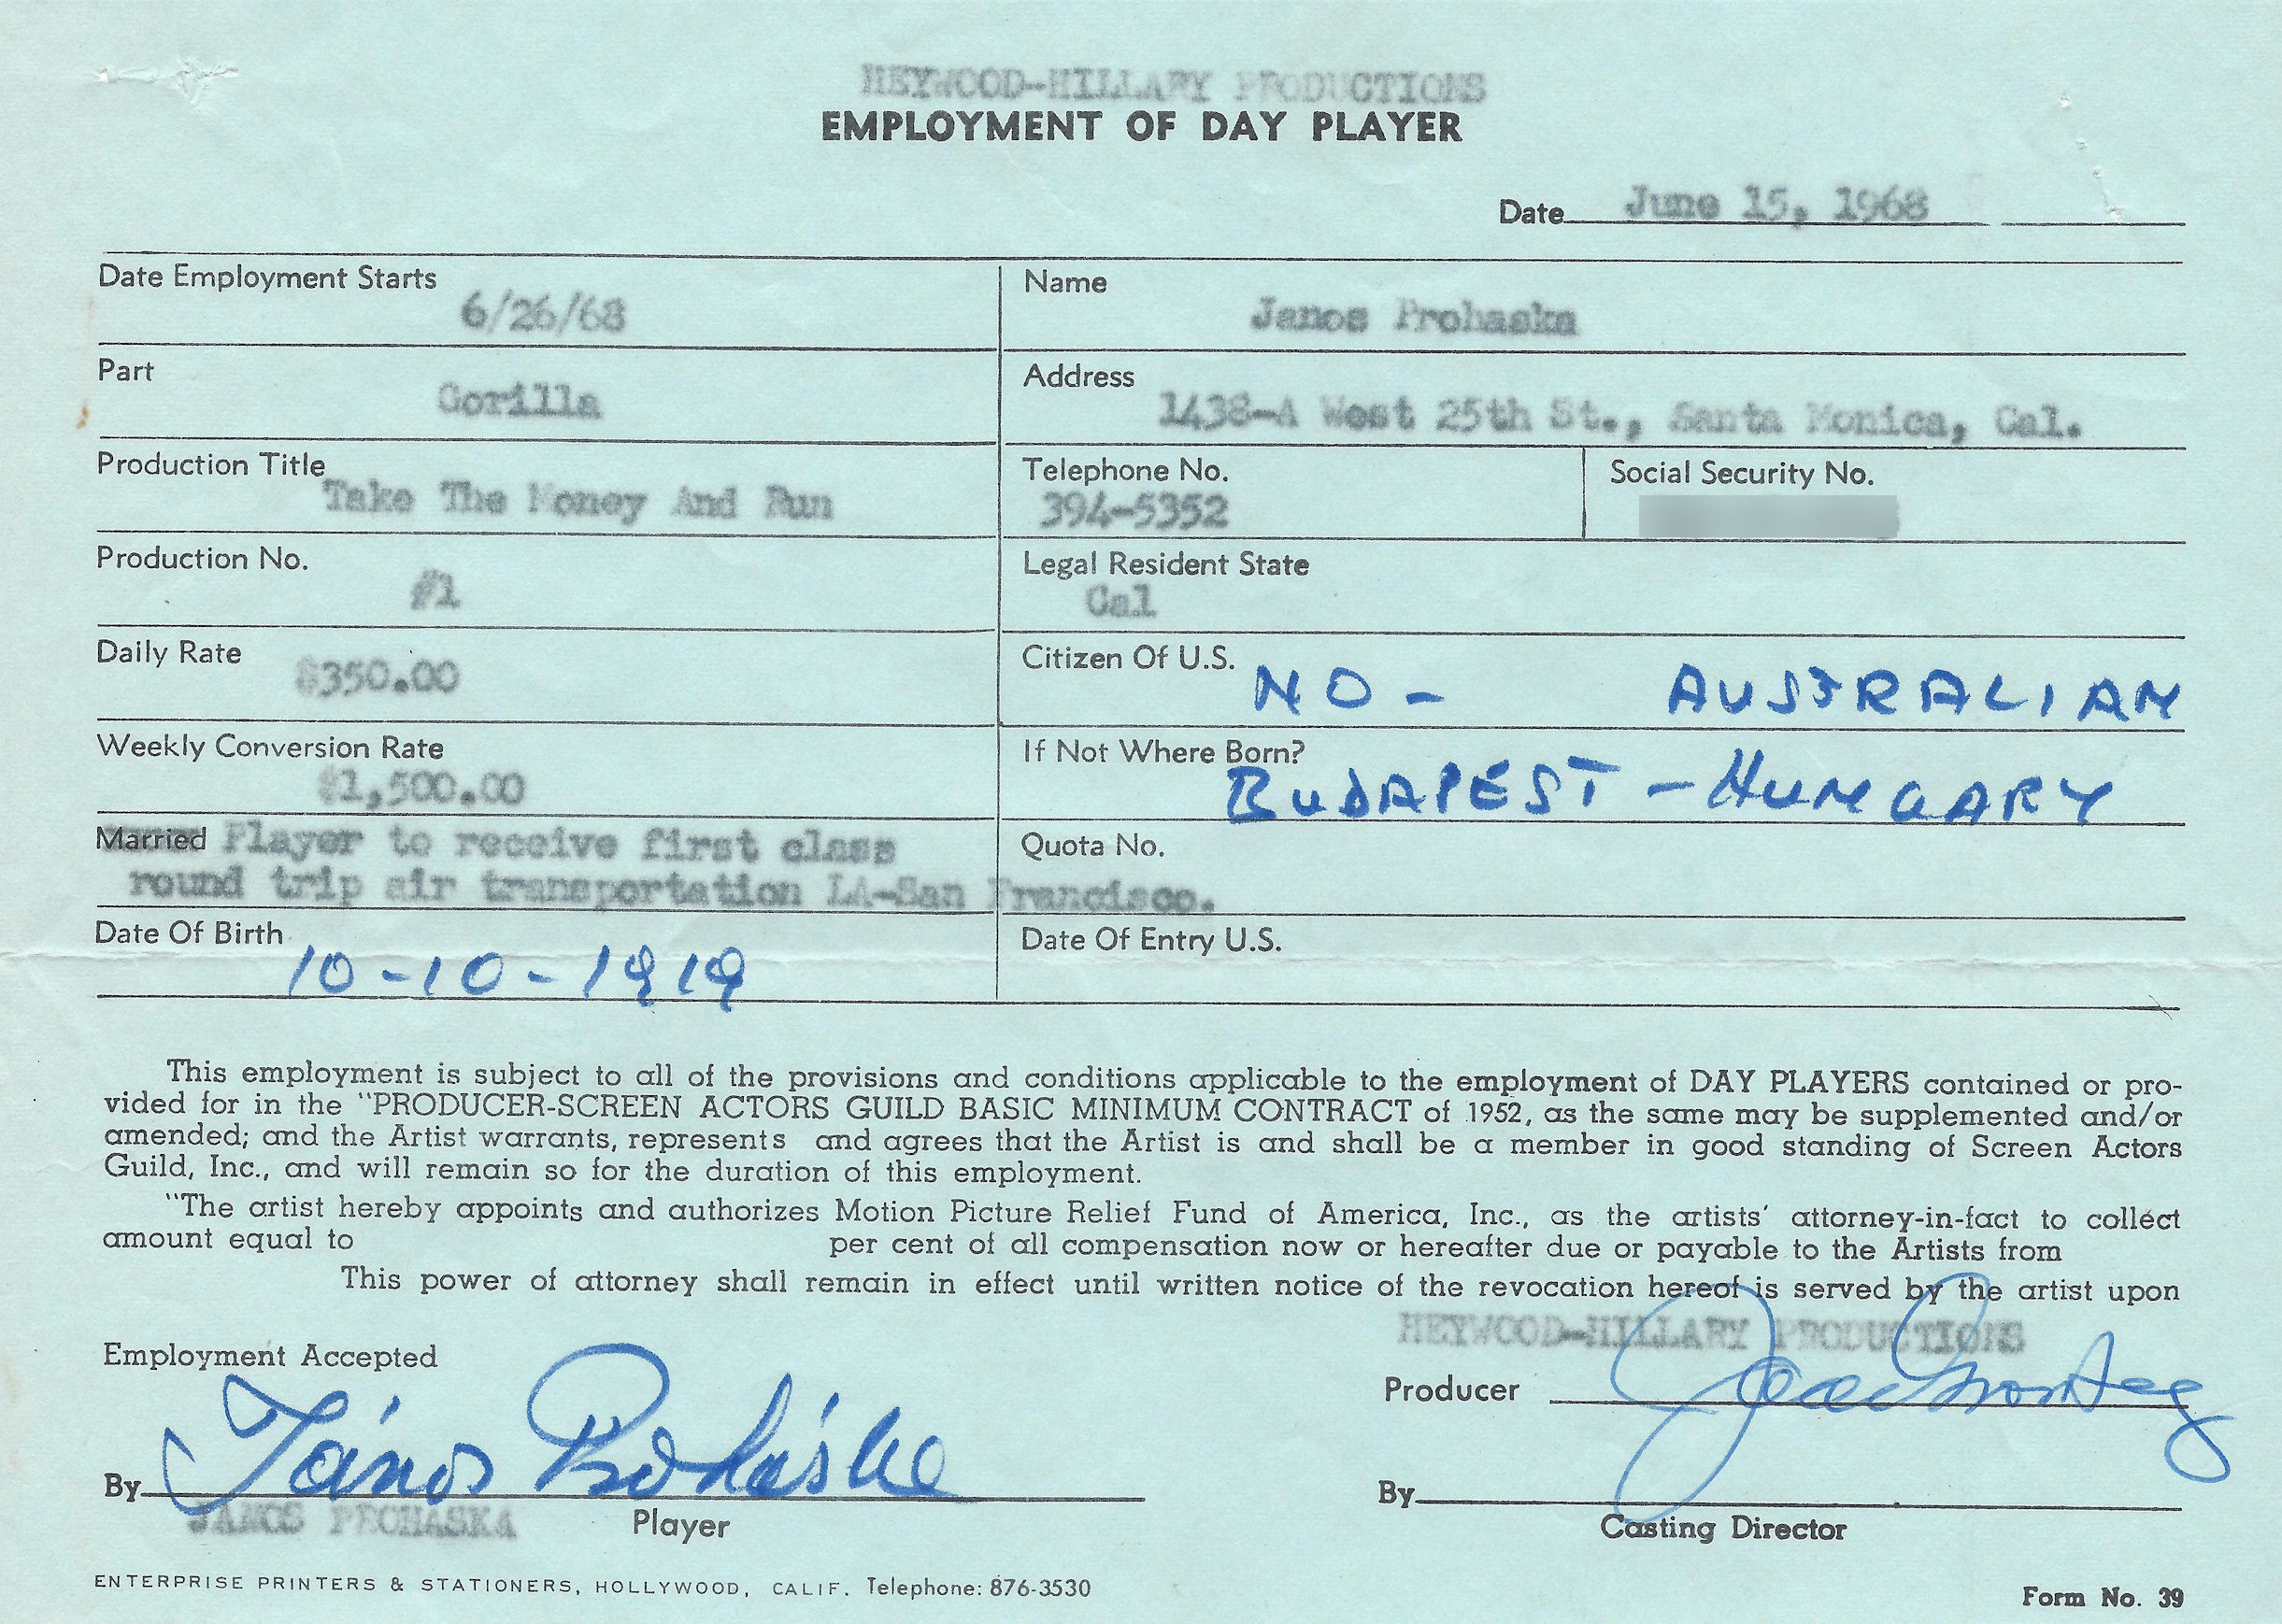 HEYWOOD-HILLARY PRODUCTIONS
EMPLOYMENT OF DAY PLAYER
Date June 15, 1968
Date Employment Starts
6/26/68
Name
Janos Prohaska
Part
Gorilla
Address
1438-A West 25th St., Santa Monica, Cal.
Production Title
Take The Money And Run
Telephone No.
394-5352
Social Security No.
Production No.
#1
Legal Resident State
Cal
Daily Rate
$350.00
Citizen Of U.S.
NO - AUSTRALIAN
Weekly Conversion Rate
$1,500.00
If Not Where Born?
BUDAPEST - HUNGARY
Married Player to receive first class
round trip air transportation LA-San Francisco.
Quota No.
Date Of Birth
10-10-1919
Date Of Entry U.S.
This employment is subject to all of the provisions and conditions applicable to the employment of DAY PLAYERS contained or pro-
vided for in the "PRODUCER-SCREEN ACTORS GUILD BASIC MINIMUM CONTRACT of 1952, as the same may be supplemented and/or
amended; and the Artist warrants, represents and agrees that the Artist is and shall be a member in good standing of Screen Actors
Guild, Inc., and will remain so for the duration of this employment.
"The artist hereby appoints and authorizes Motion Picture Relief Fund of America, Inc., as the artists' attorney-in-fact to collect
amount equal to per cent of all compensation now or hereafter due or payable to the Artists from
This power of attorney shall remain in effect until written notice of the revocation hereof is served by the artist upon
HEYWOOD-HILLARY PRODUCTIONS
Employment Accepted
Producer
By János Proháska
JANOS PROHASKA
Player
By
Casting Director
ENTERPRISE PRINTERS & STATIONERS, HOLLYWOOD, CALIF. Telephone: 876-3530
Form No. 39